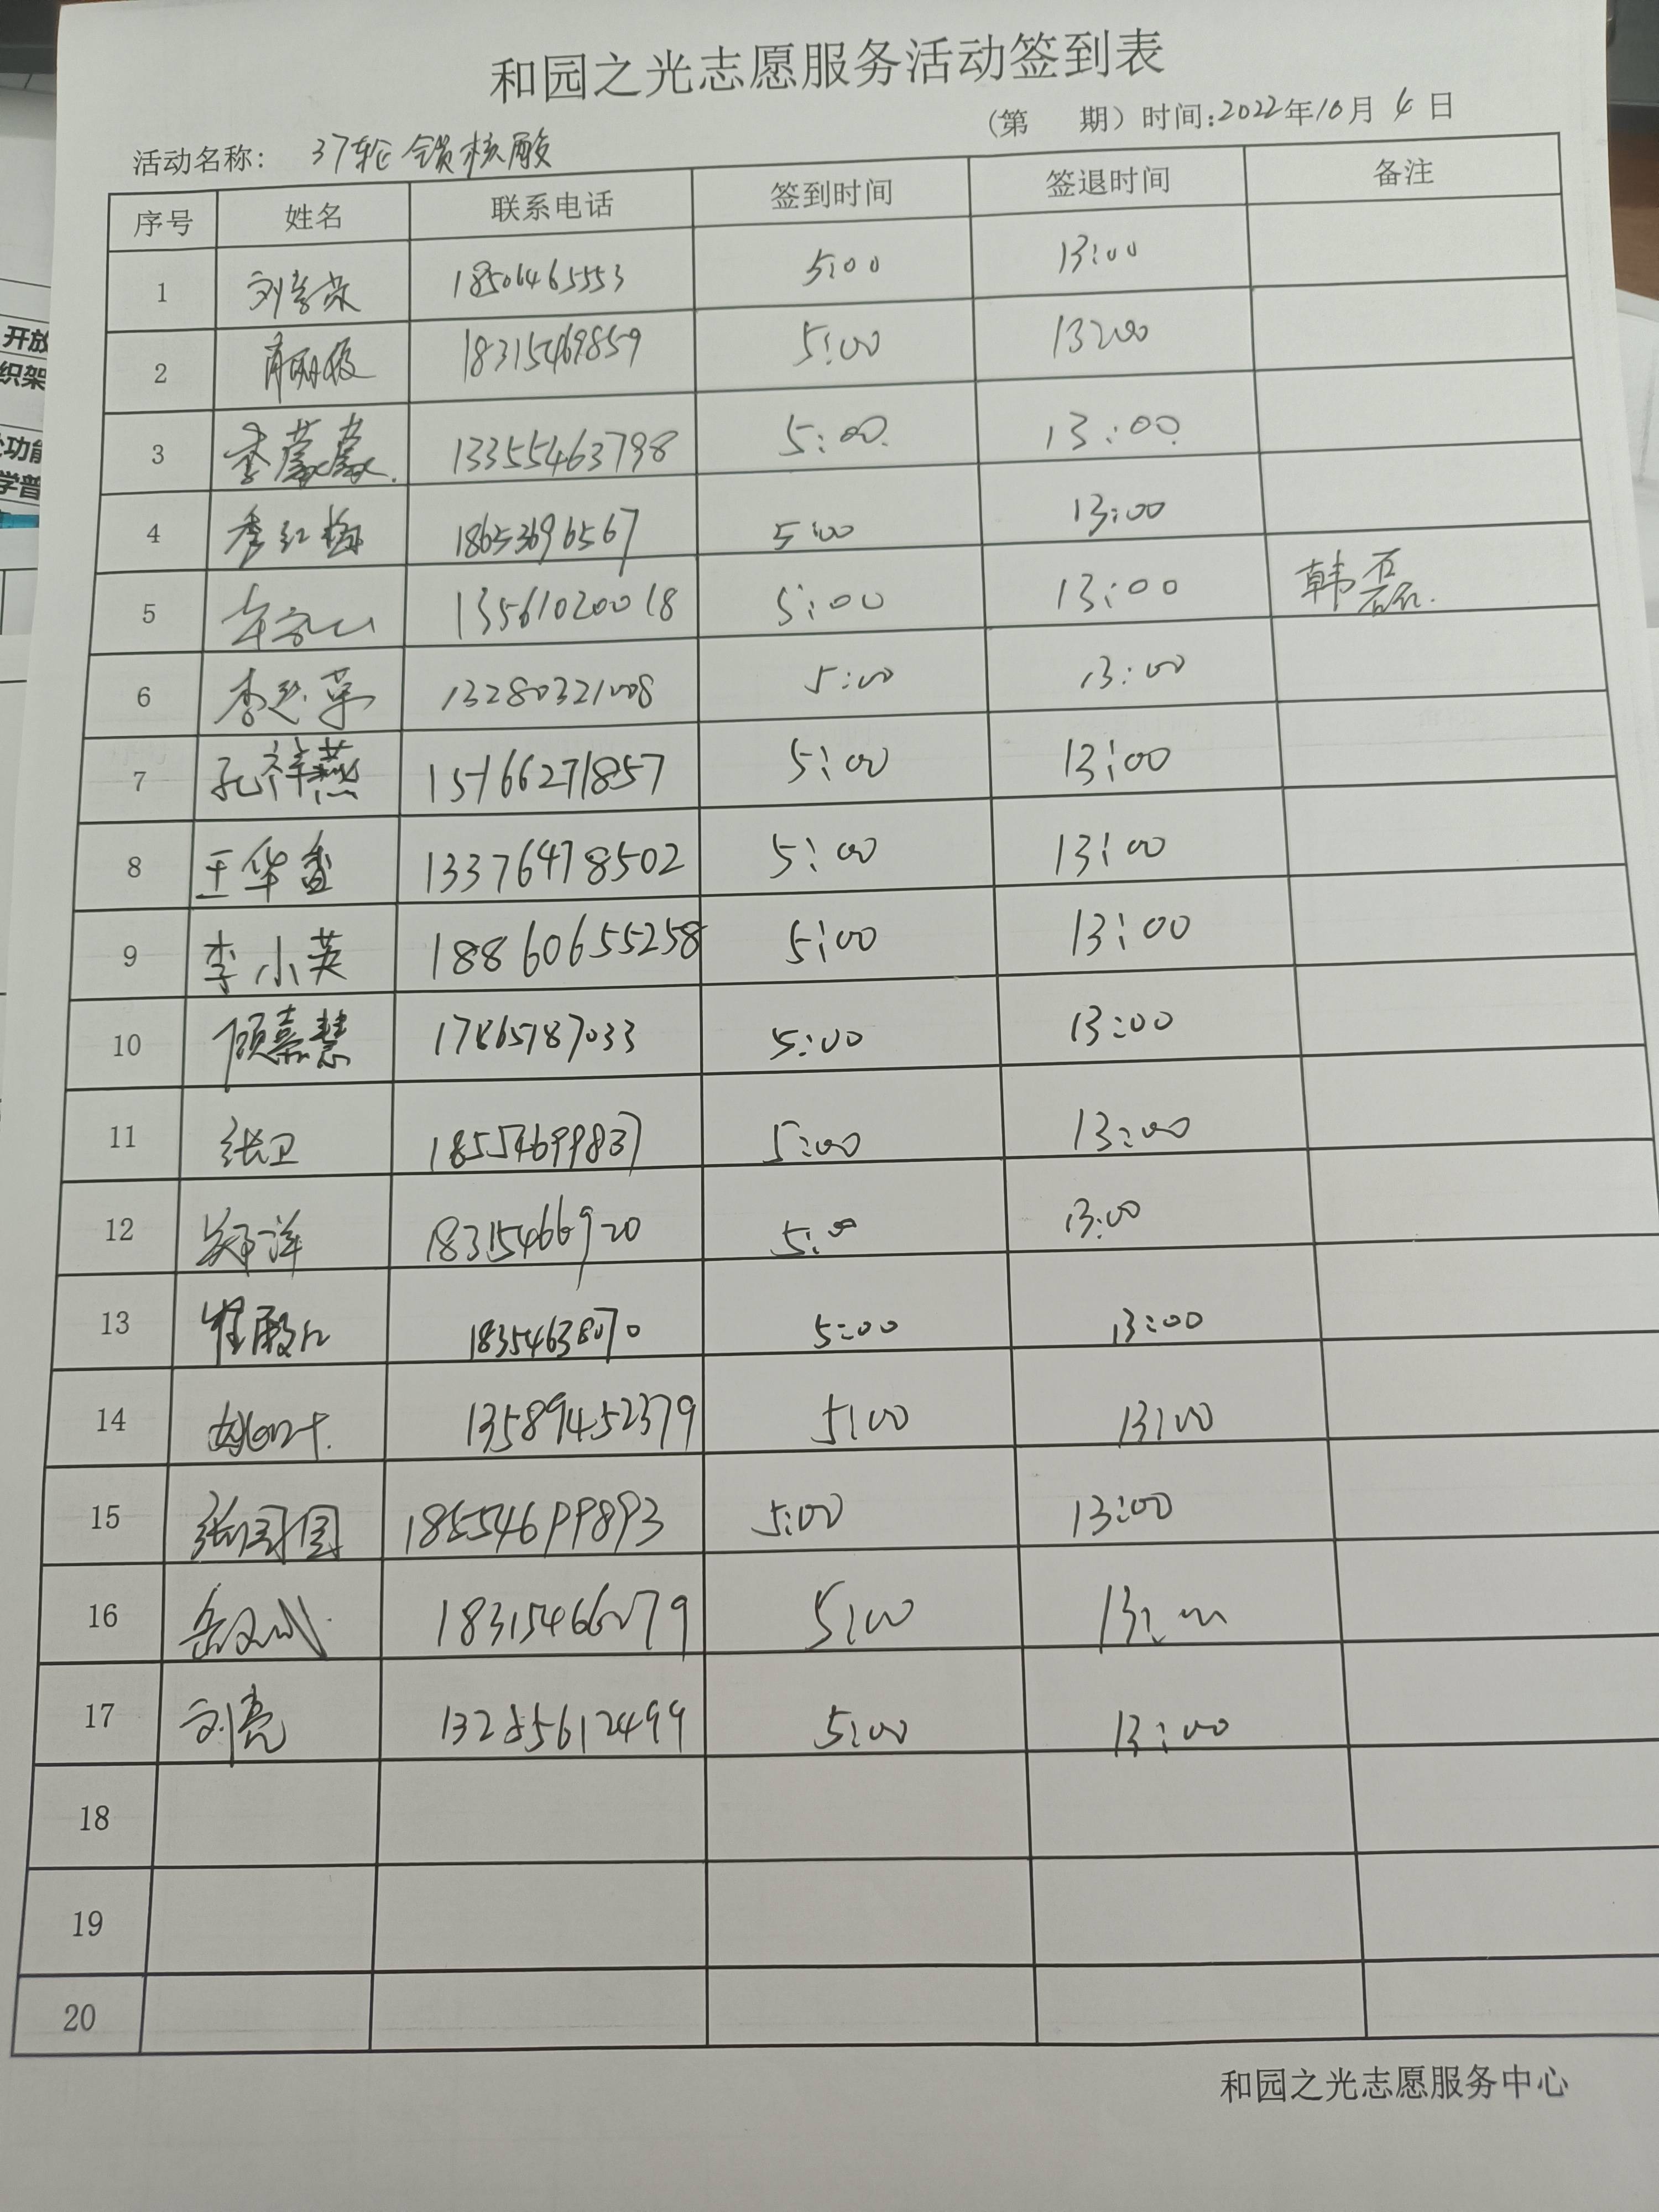 和园之光志愿服务活动签到表
(第 期) 时间:2022年10月4日
活动名称: 37轮全员核酸
序号 姓名 联系电话 签到时间 签退时间 备注
1 18506465553 5:00 13:00
2 18315469859 5:00 13:00
3 李蒙蒙. 13355463798 5:00. 13:00.
4 李红梅 18653696567 5:00 13:00
5 13561020018 5:00 13:00 韩磊.
6 13280321008 5:00 13:00
7 孔祥燕 15166271857 5:00 13:00
8 王华香 13376478502 5:00 13:00
9 李小英 18860655258 5:00 13:00
10 顾嘉慧 17865187033 5:00 13:00
11 张卫 18554699837 5:00 13:00
12 郑洋 18315466920 5:00 13:00
13 18354638070 5:00 13:00
14 13589452379 5:00 13:00
15 18554699893 5:00 13:00
16 5:00 13:00
17 刘亮 13285612499 5:00 13:00
18
19
20
和园之光志愿服务中心
开放
织架
功能
学普